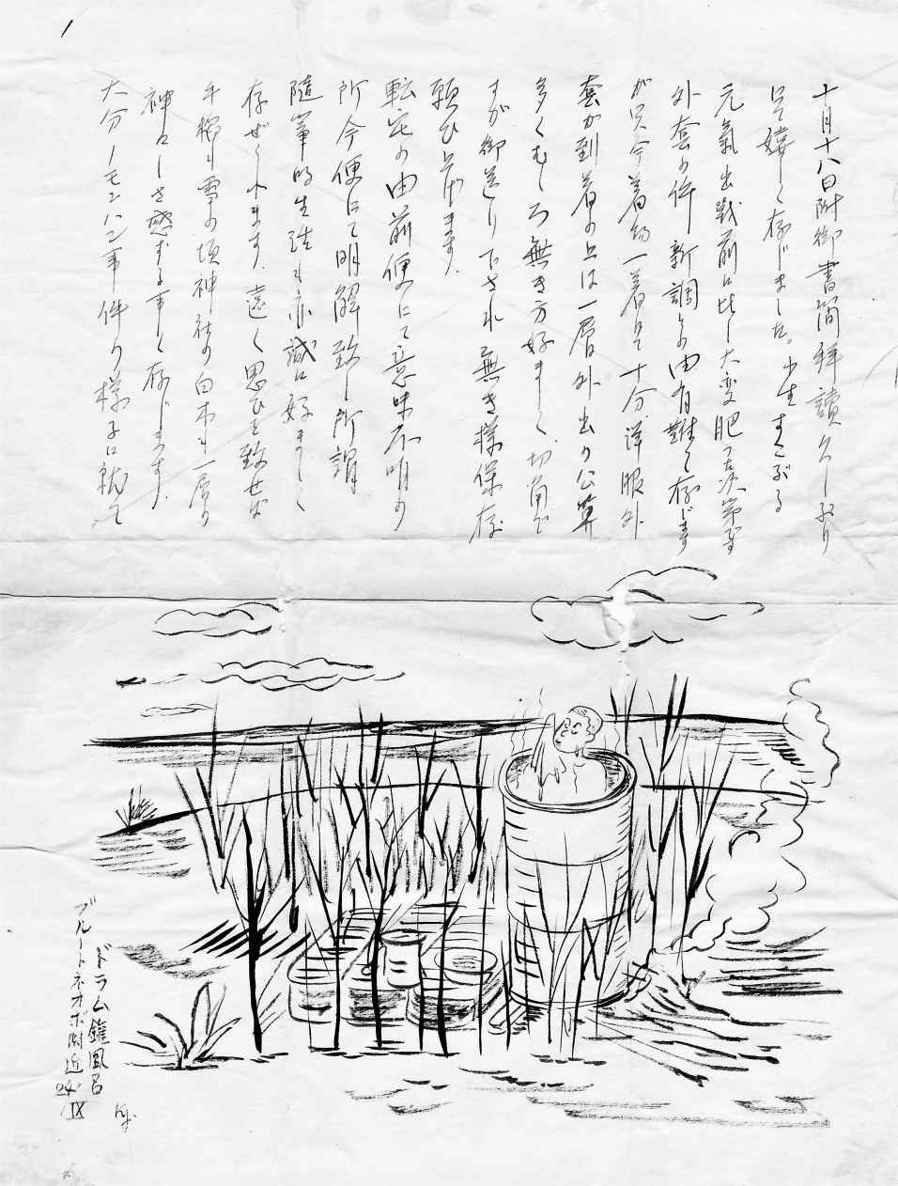 1
十月十八日附御書簡拝讀久しぶり
にて嬉しく存じました。小生すこぶる
元氣出戦前に比し大変肥つた次第です
外套の件新調の由有難く存じます
が只今着物一着にて十分洋服外
套が到着の上は一層外出の公算
多くむしろ無き方好ましく、切角で
すが御送り下され 無き様保存
願ひ上げます。
転宅の由前便にて意味不明の
所今便にて明解致し所謂
随筆的生活も亦誠に好ましく
存ぜられます。遠く思ひを致せば
雪の頃神社の白木も一層の
神々しさ感ずる事と存じます。
大分ノモンハン事件の様子に就て
ドラム鑵風呂
ブルートネオボ附近
24/IX